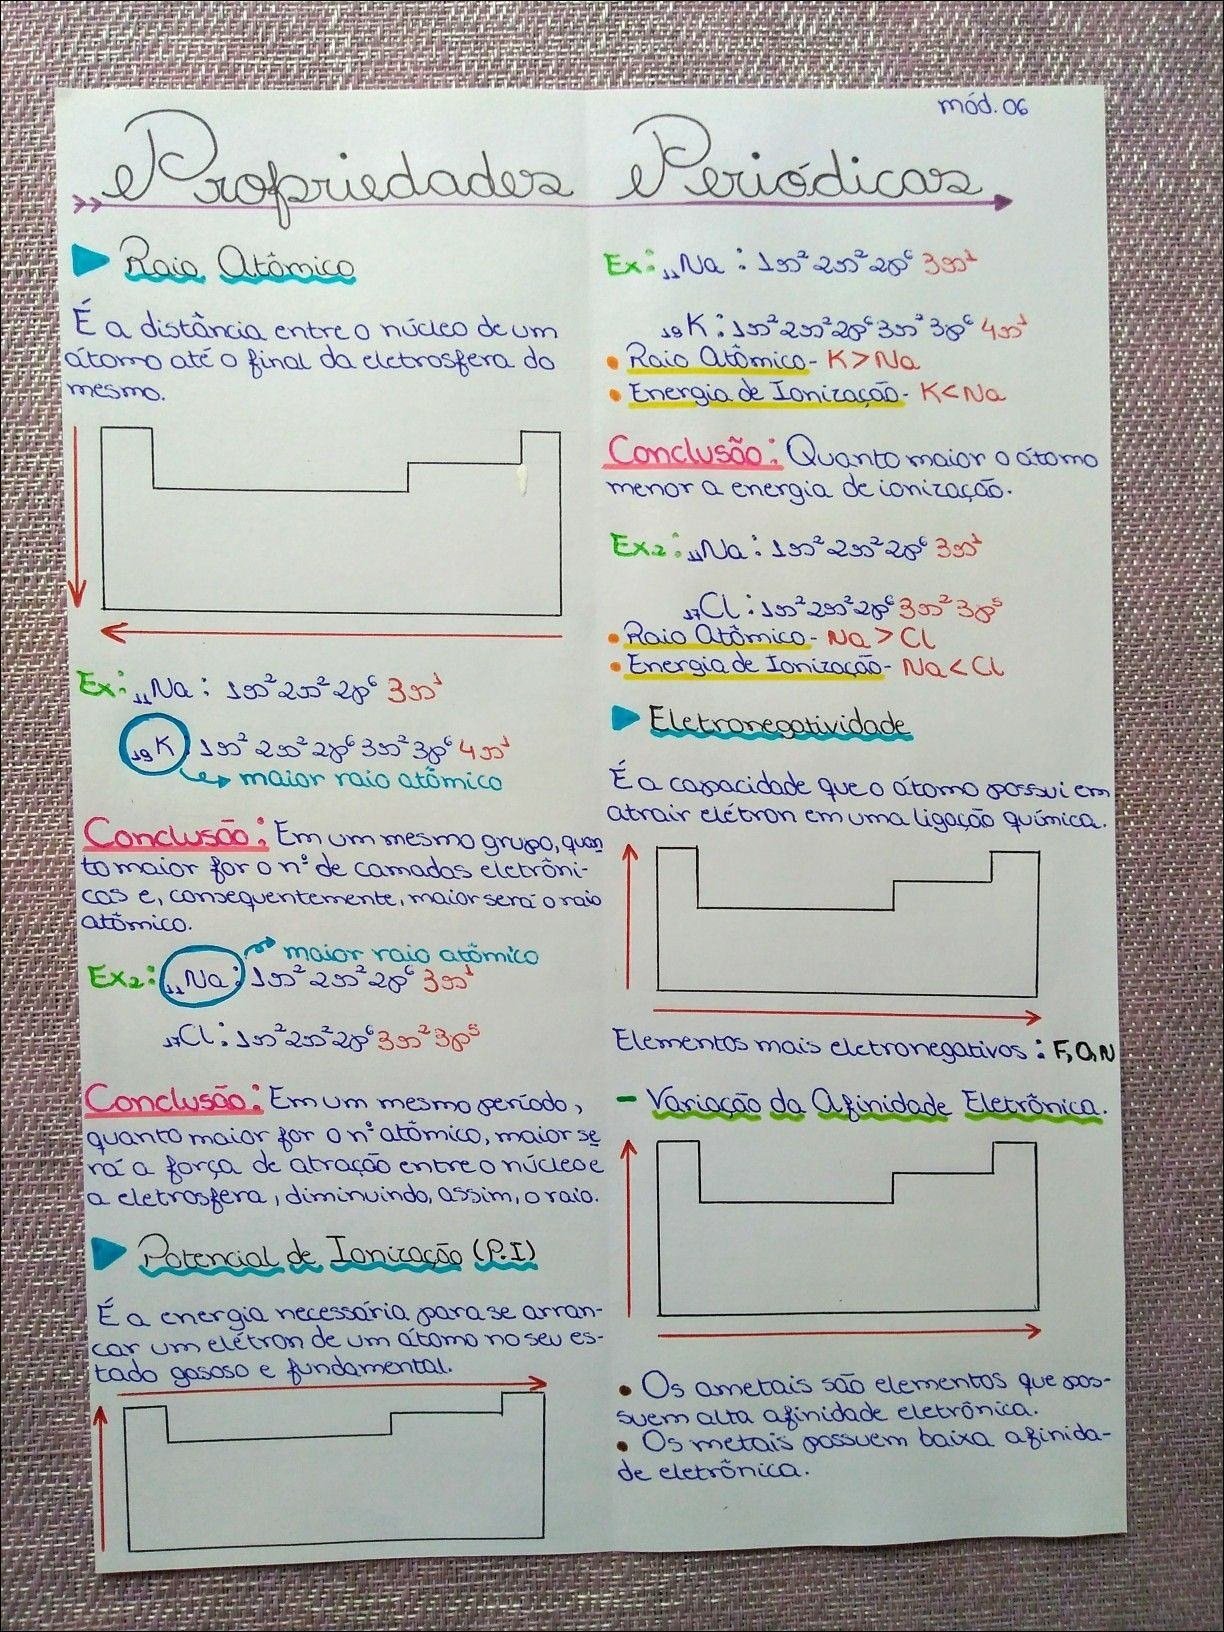 mód. 06
Propriedades Periódicas
Raio Atômico
É a distância entre o núcleo de um
átomo até o final da eletrosfera do
mesmo.
Ex: ₁₁Na : 1s² 2s² 2p⁶ 3s¹
₁₉K : 1s² 2s² 2p⁶ 3s² 3p⁶ 4s¹
maior raio atômico
Conclusão: Em um mesmo grupo, quan
to maior for o nº de camadas eletrôni-
cas e, consequentemente, maior será o raio
atômico.
maior raio atômico
Ex2: ₁₁Na : 1s² 2s² 2p⁶ 3s¹
₁₇Cl : 1s² 2s² 2p⁶ 3s² 3p⁵
Conclusão: Em um mesmo período,
quanto maior for o nº atômico, maior se
rá a força de atração entre o núcleo e
a eletrosfera, diminuindo, assim, o raio.
Potencial de Ionização (P.I)
É a energia necessária para se arran-
car um elétron de um átomo no seu es-
tado gasoso e fundamental.
Ex: ₁₁Na : 1s² 2s² 2p⁶ 3s¹
₁₉K : 1s² 2s² 2p⁶ 3s² 3p⁶ 4s¹
• Raio Atômico - K > Na
• Energia de Ionização - K < Na
Conclusão: Quanto maior o átomo
menor a energia de ionização.
Ex2: ₁₁Na : 1s² 2s² 2p⁶ 3s¹
₁₇Cl : 1s² 2s² 2p⁶ 3s² 3p⁵
• Raio Atômico - Na > Cl
• Energia de Ionização - Na < Cl
Eletronegatividade
É a capacidade que o átomo possui em
atrair elétron em uma ligação química.
Elementos mais eletronegativos : F, O, N
- Variação da Afinidade Eletrônica.
• Os ametais são elementos que pos-
suem alta afinidade eletrônica.
• Os metais possuem baixa afinida-
de eletrônica.